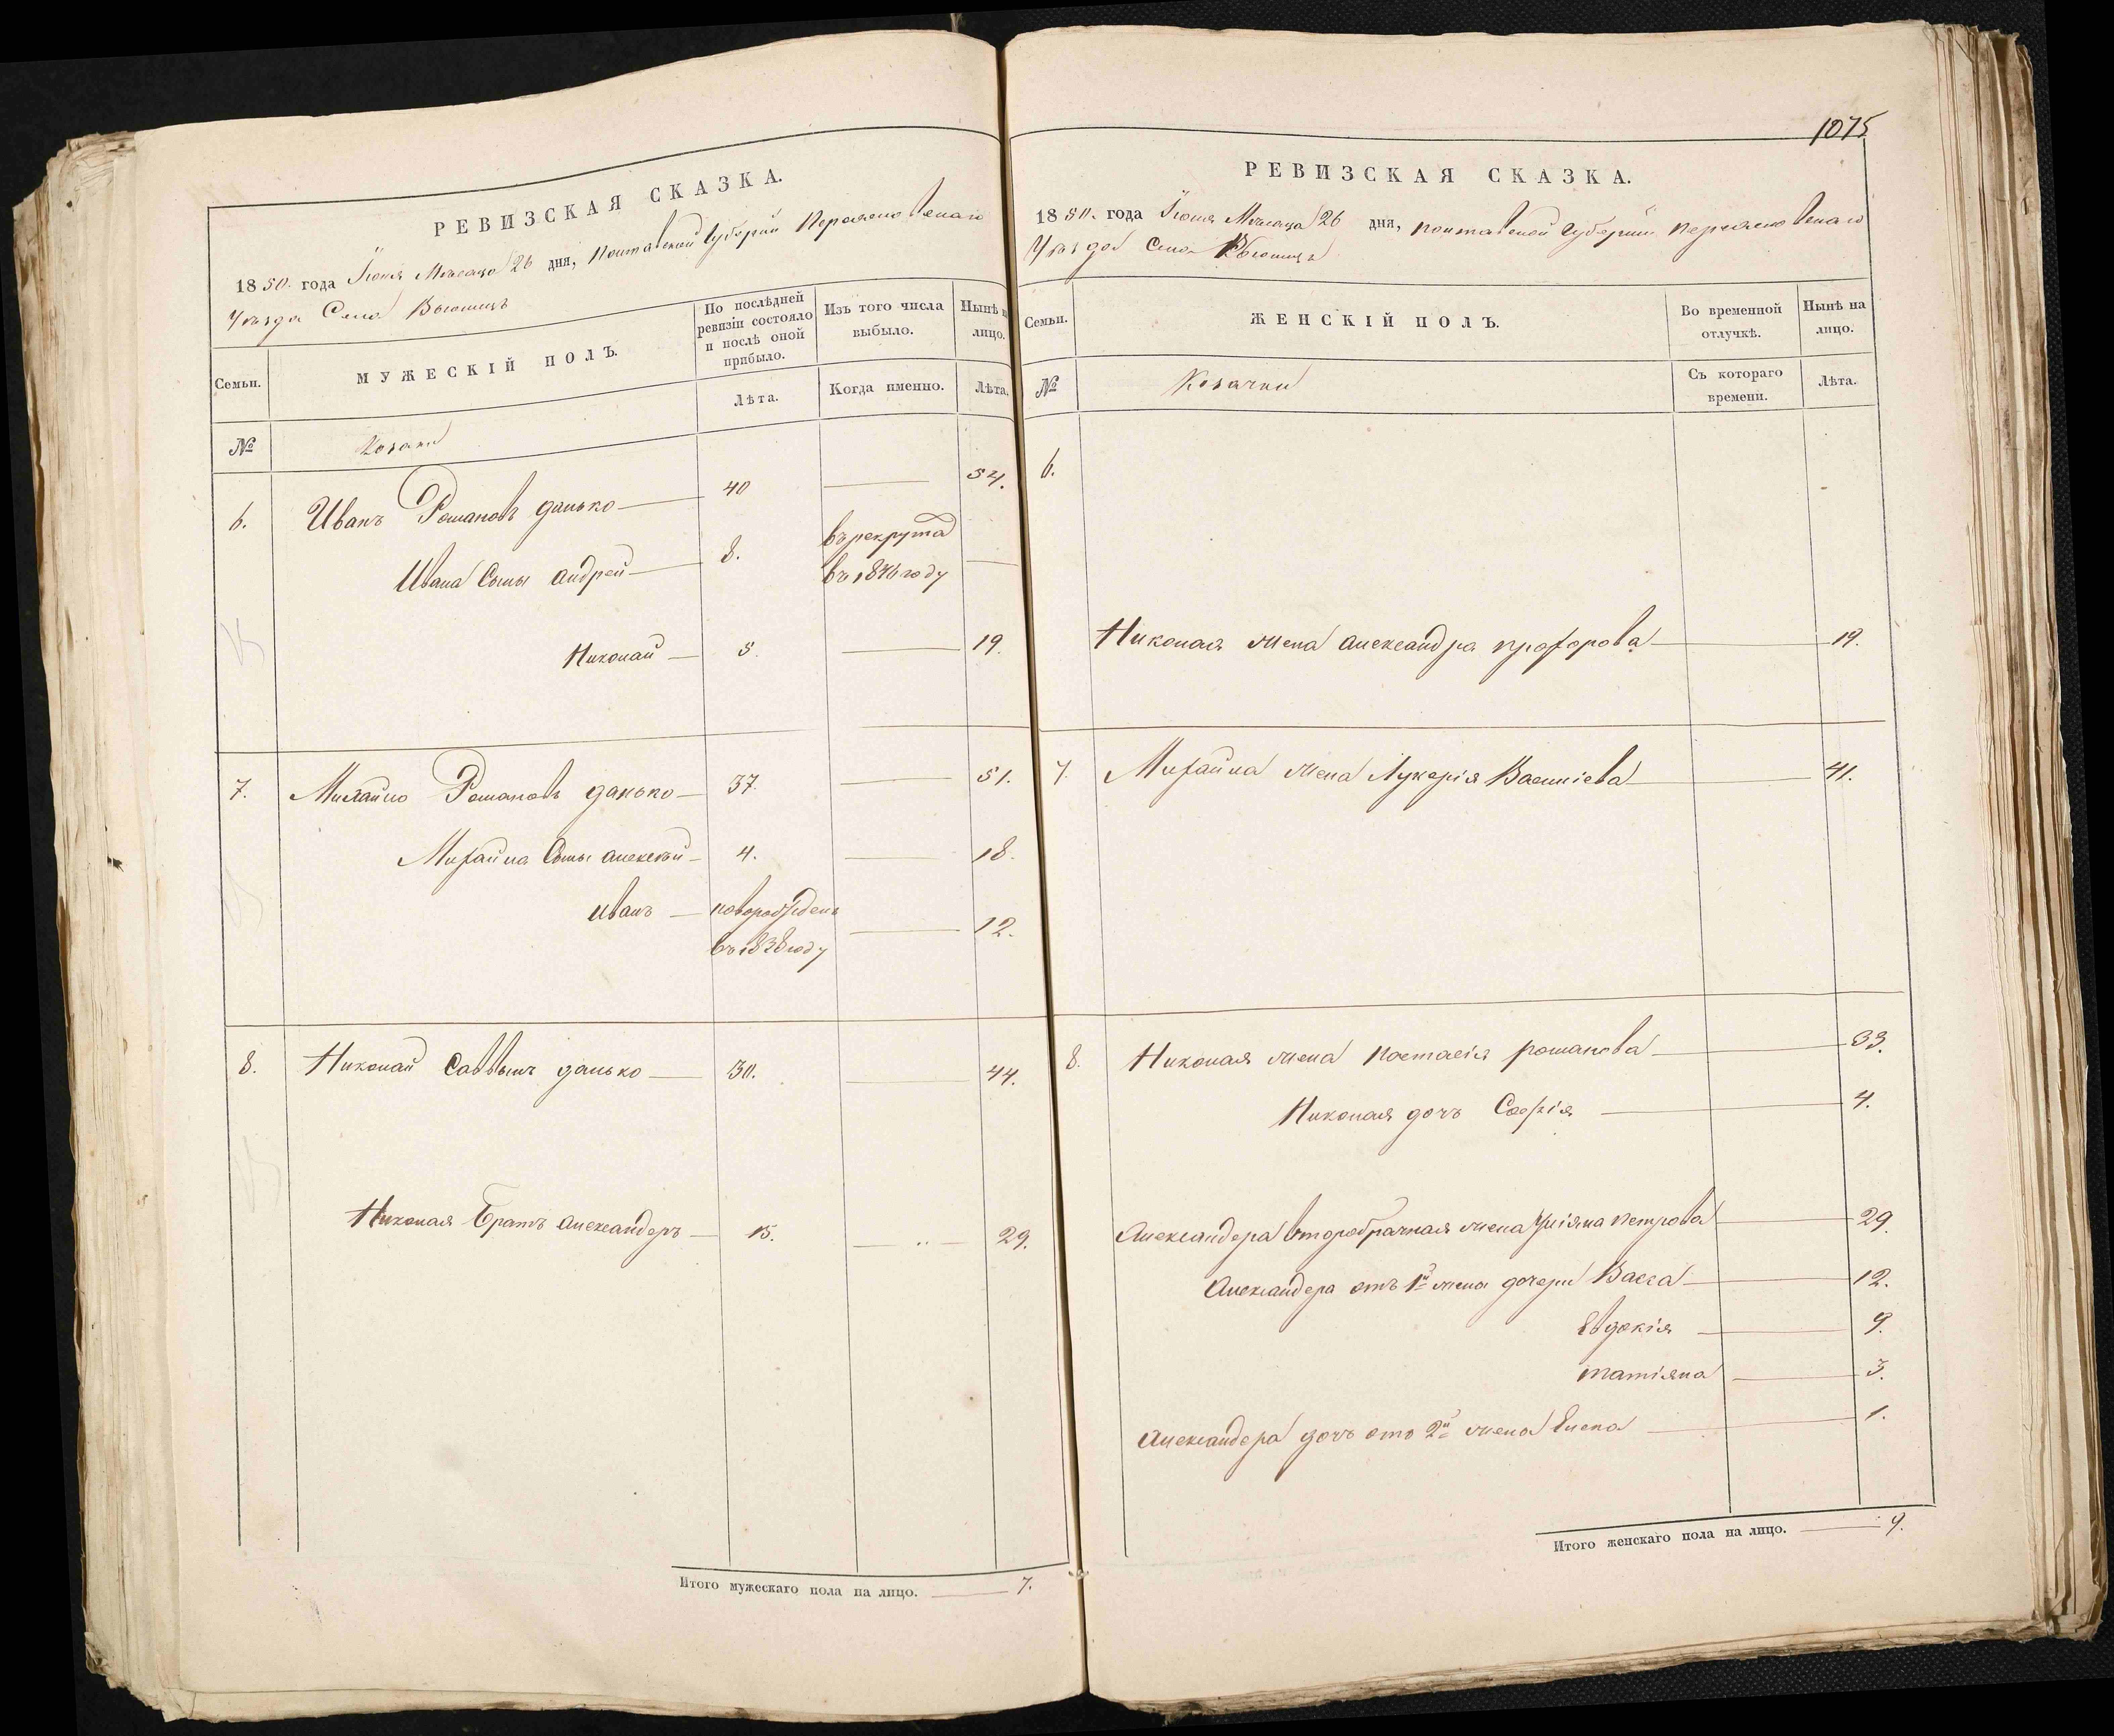 РЕВИЗСКАЯ СКАЗКА.
1850. года Іюня Мѣсяца 26 дня, Полтавской Губерніи Переяславскаго
Уѣзда Села Вьюнищъ
Семьи. МУЖЕСКІЙ ПОЛЪ. По послѣдней ревизіи состояло и послѣ оной прибыло. Изъ того числа выбыло. Нынѣ на лицо.
№ Козаки Лѣта. Когда именно. Лѣта.
6. Иванъ Романовъ данько — 40 — 54.
Ивана Сыны андрей — 8. въ рекрута —
въ 1846 году
Николай — 5. — 19.
7. Михайло Романовъ данько — 37. — 51.
Михайла Сыны алексѣй — 4. — 18.
иванъ — новорожденъ — 12.
въ 1838 году
8. Николай Саввинъ данько — 30. — 44.
Николая Братъ александеръ — 15. — 29.
Итого мужескаго пола на лицо. — 7.
1075
РЕВИЗСКАЯ СКАЗКА.
1850. года Іюня Мѣсяца 26 дня, полтавской Губерніи переяславскаго
Уѣзда Села Вьюнищъ
Семьи. ЖЕНСКІЙ ПОЛЪ. Во временной отлучкѣ. Нынѣ на лицо.
№ Козачки Съ котораго времени. Лѣта.
6.
Николая жена александра профорова — 19.
7. Михайла жена Лукерія Василіева — 41.
8. Николая жена настасія романова — 33.
Николая дочь Софія — 4.
Александера второбрачная жена Уліяна петрова — 29.
Александера отъ 1й жены дочери Васса — 12.
Евдокія — 9.
татіяна — 3.
Александера дочь отъ 2й жены Елена — 1.
Итого женскаго пола на лицо. — 9.